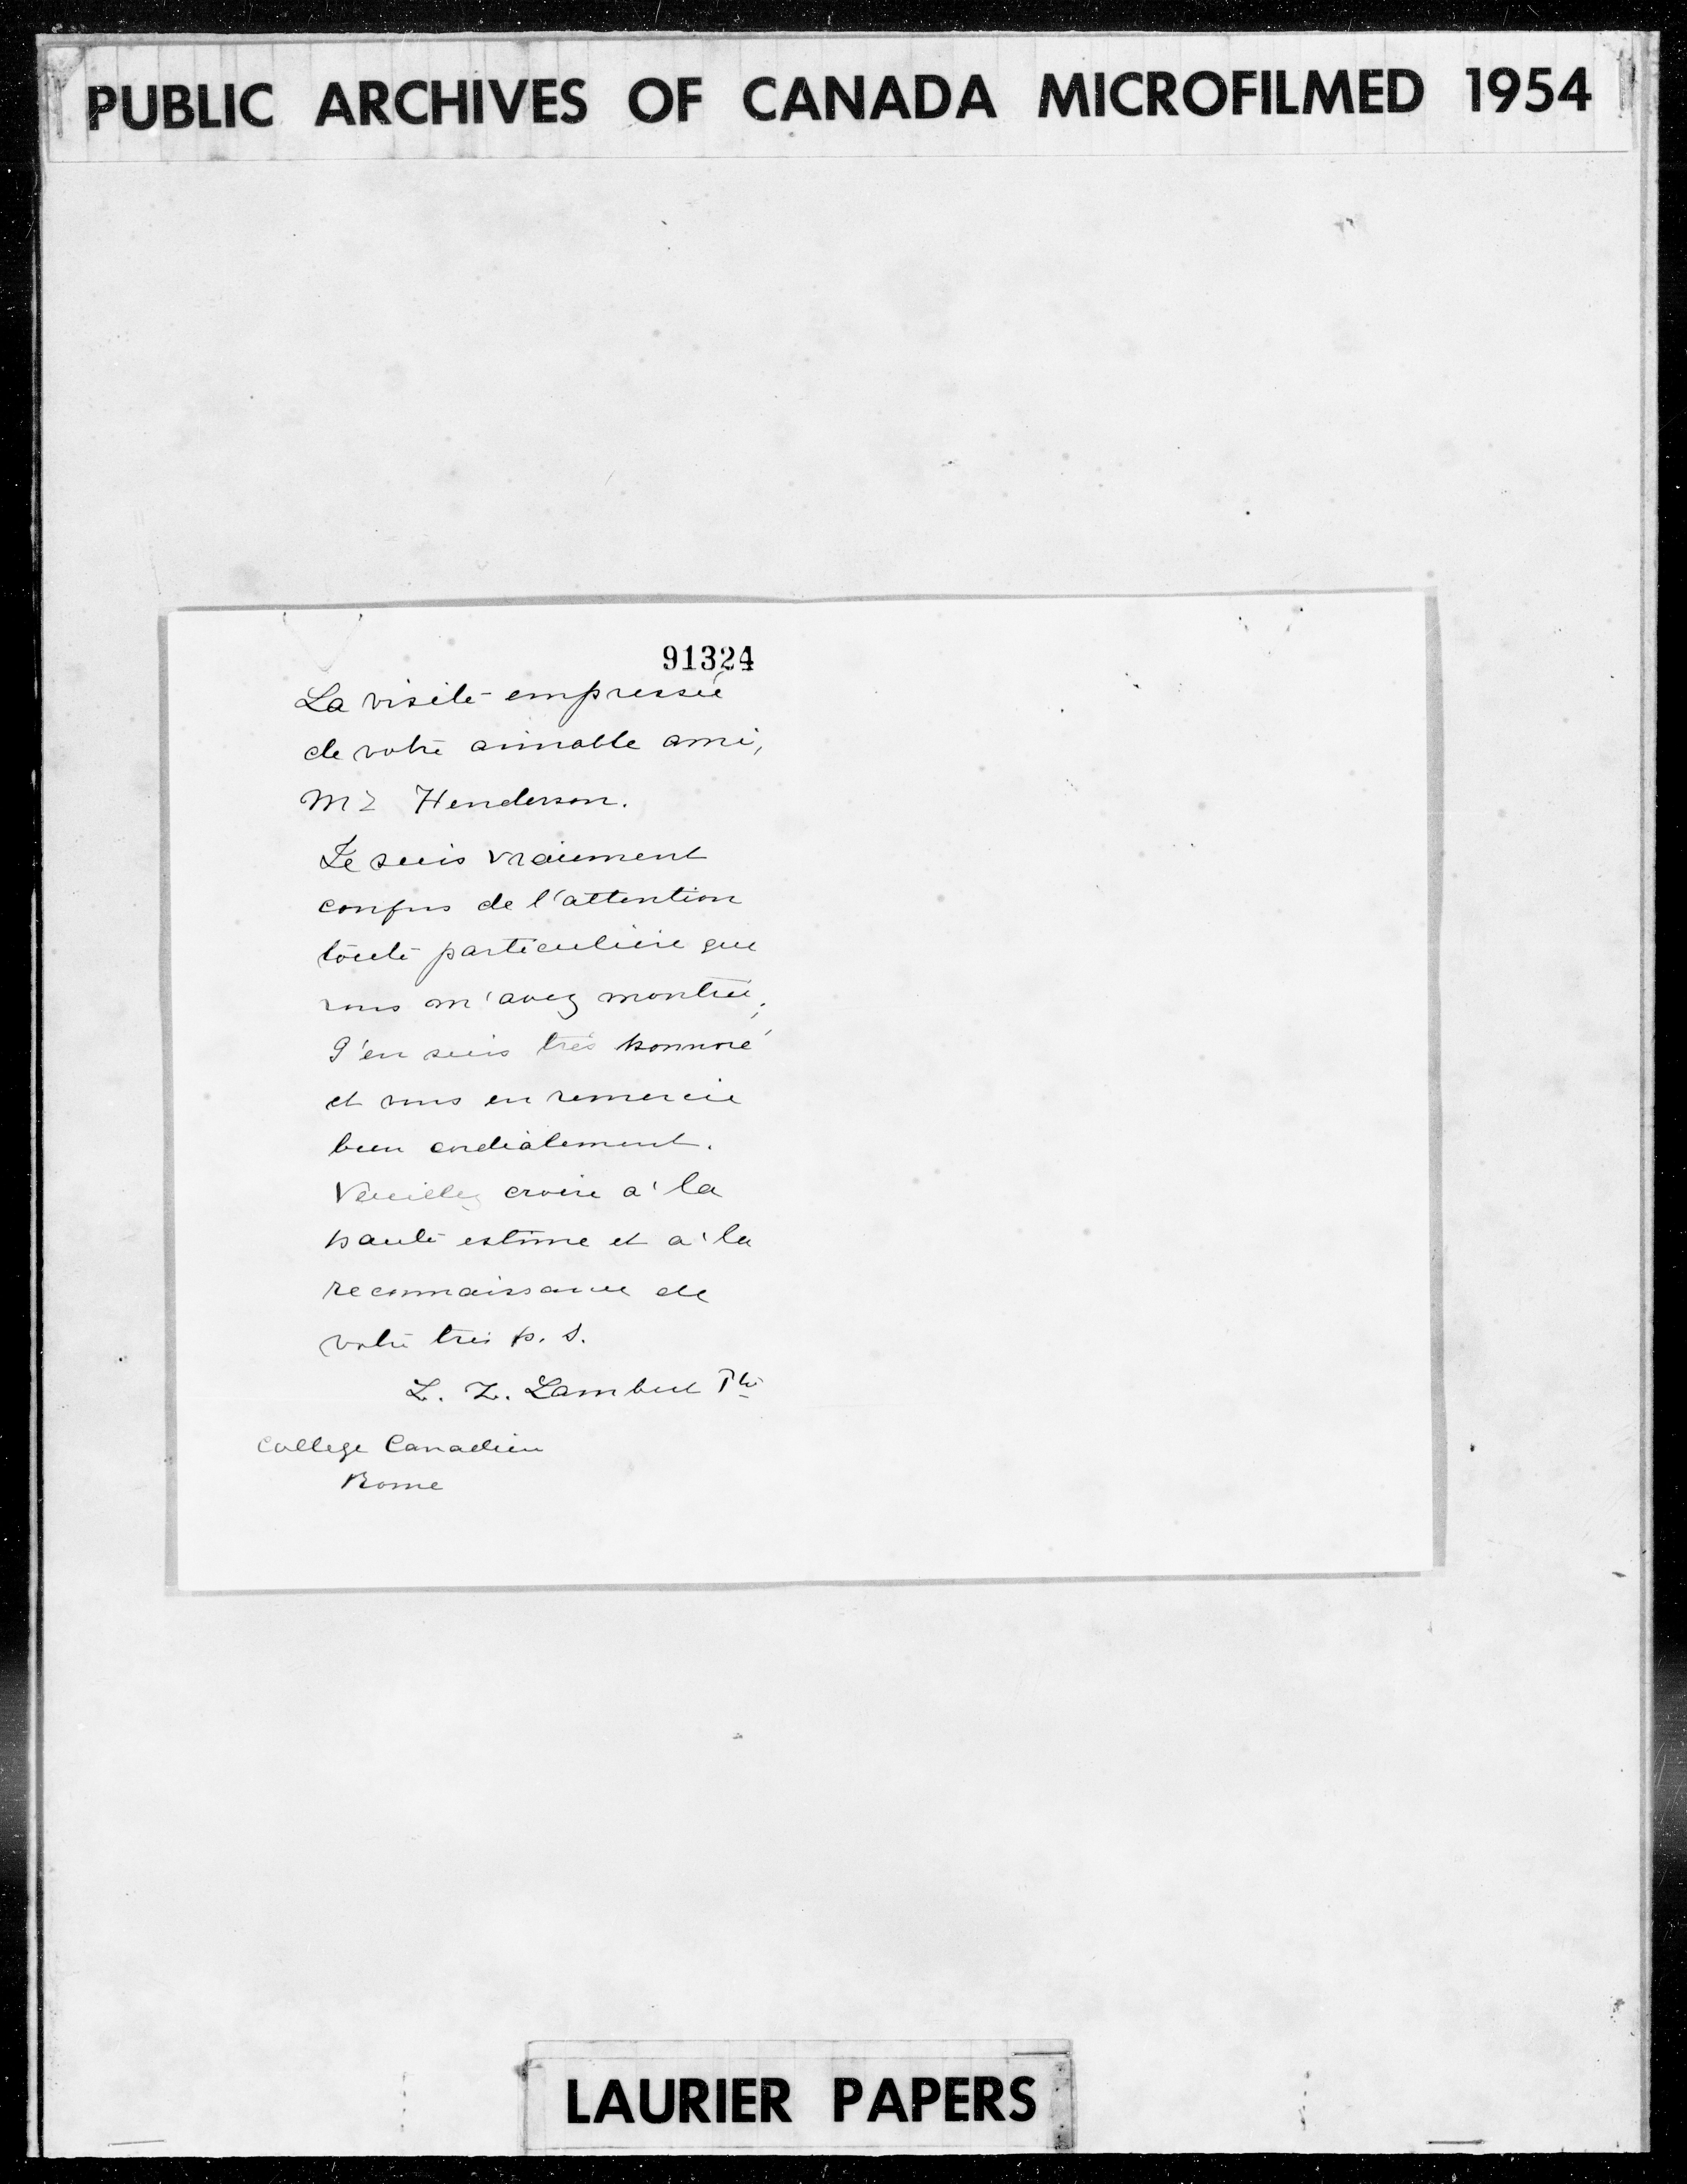 PUBLIC ARCHIVES OF CANADA MICROFILMED 1954
91324
La visite empressée
de votre aimable ami,
Mr Henderson.
Je suis vraiment
confus de l'attention
toute particulière que
vous m'avez montrée;
J'en suis très honnoré
et vous en remercie
bien cordialement.
Veuillez croire à la
haute estime et à la
reconnaissance de
votre très p. s.
Z. Lambert Ptre
College Canadien
Rome
LAURIER PAPERS